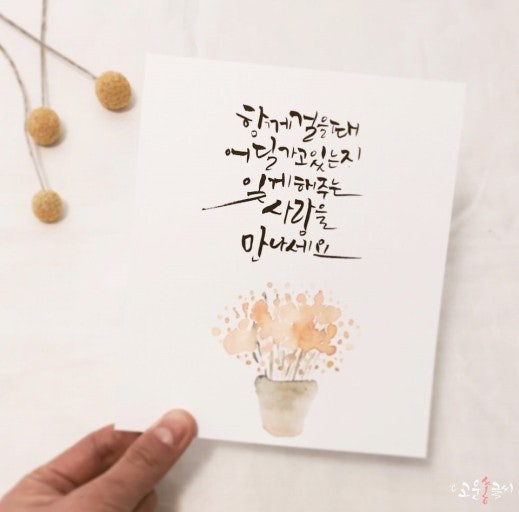 함께 걸을 때
어딜 가고 있는지
잊게 해주는
사람을
만나세요
고운 글씨